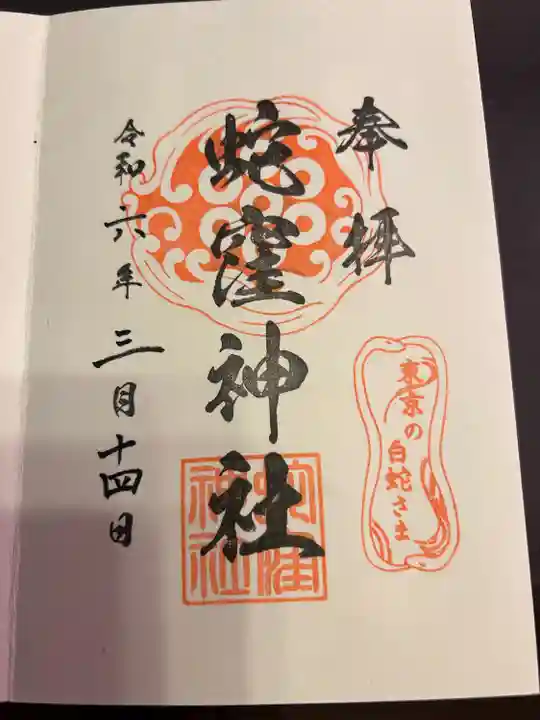 奉拝
東京の白蛇さま
蛇窪神社
蛇窪
神社
令和六年三月十四日